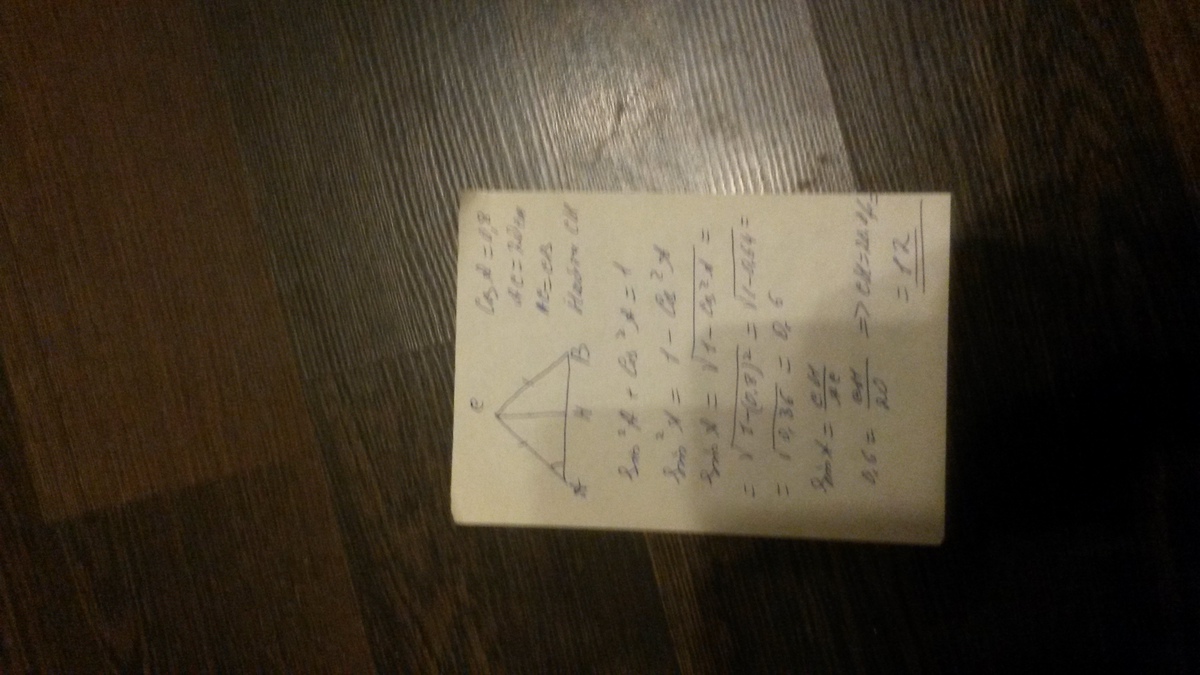 C
A H B
Cos A = 0,8
AC = 20 см
AC = CB
Найти CH
Sin²A + Cos²A = 1
Sin²A = 1 - Cos²A
Sin A = √1 - Cos²A =
= √1-(0,8)² = √1-0,64 =
= √0,36 = 0,6
Sin A = CH/AC
0,6 = CH/20 => CH = 20·0,6 =
= 12